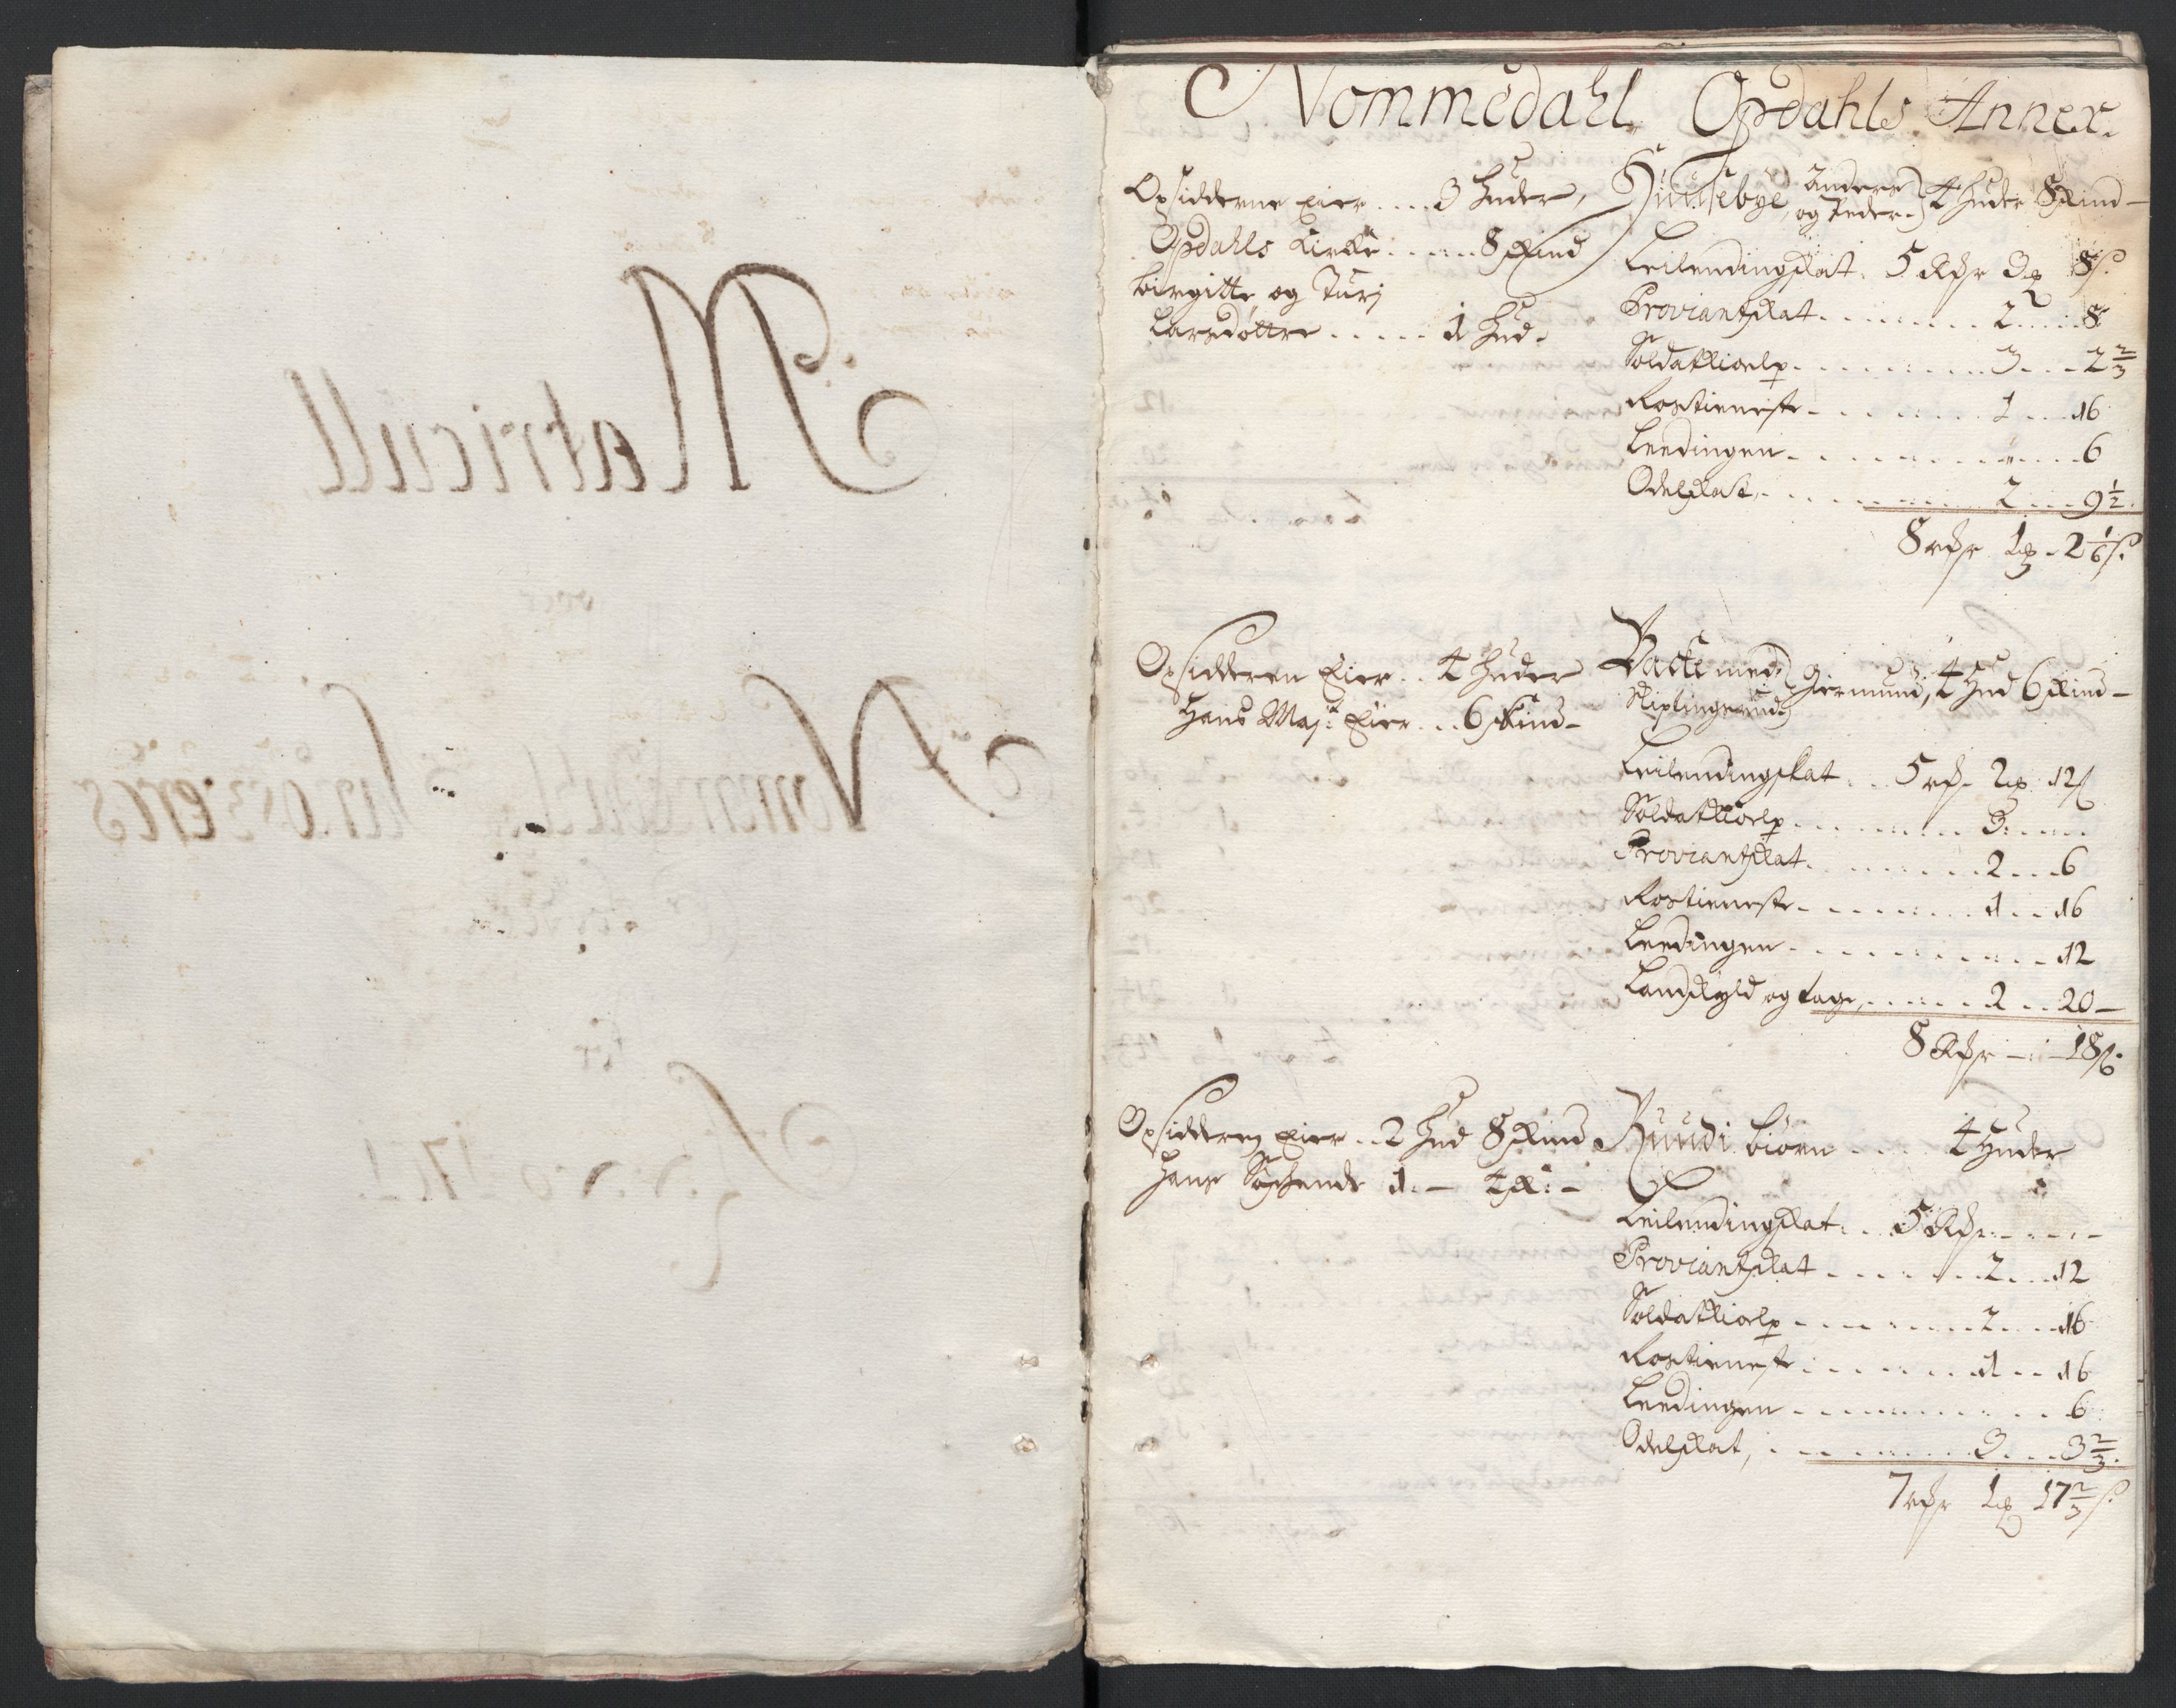 Nommedahl Opdahls Annex.
Opsidderne Eier .... 3 huder,
Opdahls Kirke ..... 8 skind
birgitte og Turj
Larsdøttre ..... 1 hud.
bye, Anders og Peder. 4 huder 8 skind -
Leilendingskat. 5 Rdr 3 8 s.
Proviantskat ........ 2 .... 8
Soldatkioelp ........ 3 .... 2 2/3
Rostieneste ........ 1 ... 16
Leedingen ........ 6
Odelskat, ........ 2 ... 9 1/2.
8 rdr 1 - 2 1/6 s.
Opsidderen Eier .. 4 huder
Hans Maj: Eier ... 6 skind -
Backe med Giermund, 4 hud 6 skind -
Leilendingskat .. 5 rd. 2 12 s
Soldatkioelp ........ 3: .....
Proviantskat ........ 2 ... 6
Rostieneste ........ 1 .. 16
Leedingen ........ 12
Landskyld og tage, ..... 2 .. 20 -
8 Rdr - : - 18 s.
Opsidderen Eier .. 2 hud 8 skind
Hans Søskende 1. - 4 sk: -
Ruudi biørn .... 4 huder
Leilendingskat: .. 5 Rdr: - . . -
Proviantskat ...... 2 ... 12
Soldatkioelp ...... 2 ... 16
Rostieneste ...... 1 .. 16
Leedingen ........ 6
Odelskat, ........ 3 ... 3 2/3.
7 rdr 1 17 2/3 s.